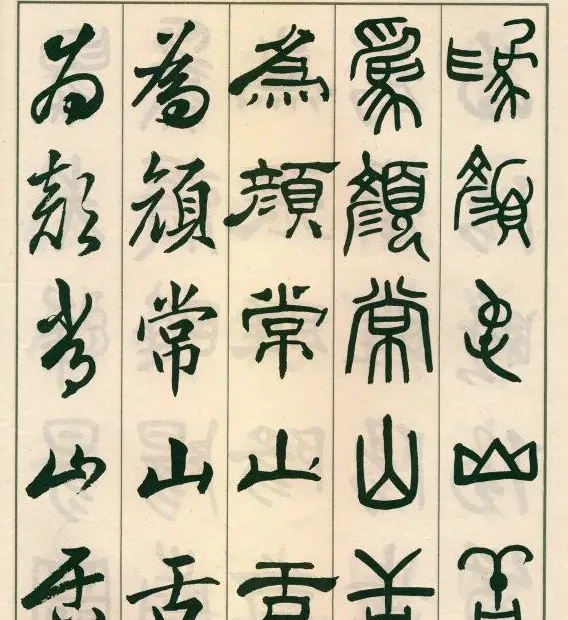 爲顏常山舌
爲顏常山舌
為顏常山舌
為顏常山舌
為顏常山舌